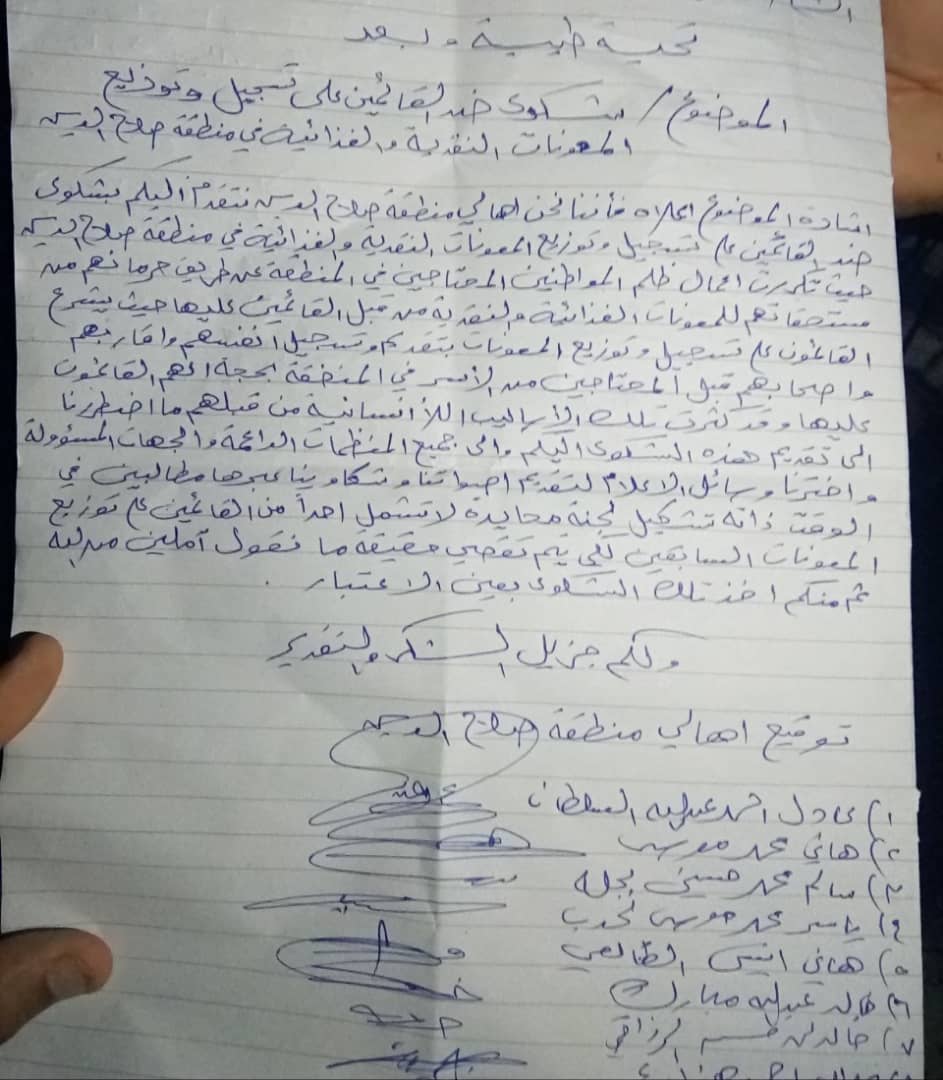 تحية طيبة وبعد
الموضوع / شكوى ضد القائمين على تسجيل وتوزيع
المعونات النقدية والغذائية في منطقة صلاح الدين
اشادة الموضوع اعلاه فأننا نحن اهالي منطقة صلاح الدين نتقدم اليكم بشكوى
ضد القائمين على تسجيل وتوزيع المعونات النقدية والغذائية في منطقة صلاح الدين
حيث تكررت اعمال ظلم المواطنين المحتاجين في المنطقة عن طريق حرمانهم من
مستحقاتهم للمعونات الغذائية والنقدية من قبل القائمين عليها حيث يشرع
القائمون على تسجيل وتوزيع المعونات بتقديم وتسجيل انفسهم واقاربهم
واصحابهم قبل المحتاجين من الأسر في المنطقة بحجة انهم القائمون
عليها وقد كثرت تلك الأساليب اللاأنسانية من قبلهم ما اضطرنا
الى تقديم هذه الشكوى اليكم والى جميع المنظمات الداعمة والجهات المسؤولة
واخترنا وسائل الاعلام لتقديم اصواتنا وشكاوينا عبرها مطالبين في
الوقت ذاته تشكيل لجنة محايدة لا تشمل احداً من القائمين على توزيع
المعونات السابقين لكي يتم تقصي حقيقة ما نقول آملين من الله
ثم منكم اخذ تلك الشكوى بعين الاعتبار .
ولكم جزيل الشكر والتقدير
توقيع اهالي منطقة صلاح الدين
١) عادل احمد عبدالله السلطان
٢) هاني محمد موسى
٣) سالم محمد حسين
٤) ياسر محمد موسى
٥) هاني انيس
٦) عبدالله مبارك
٧) خالد قاسم